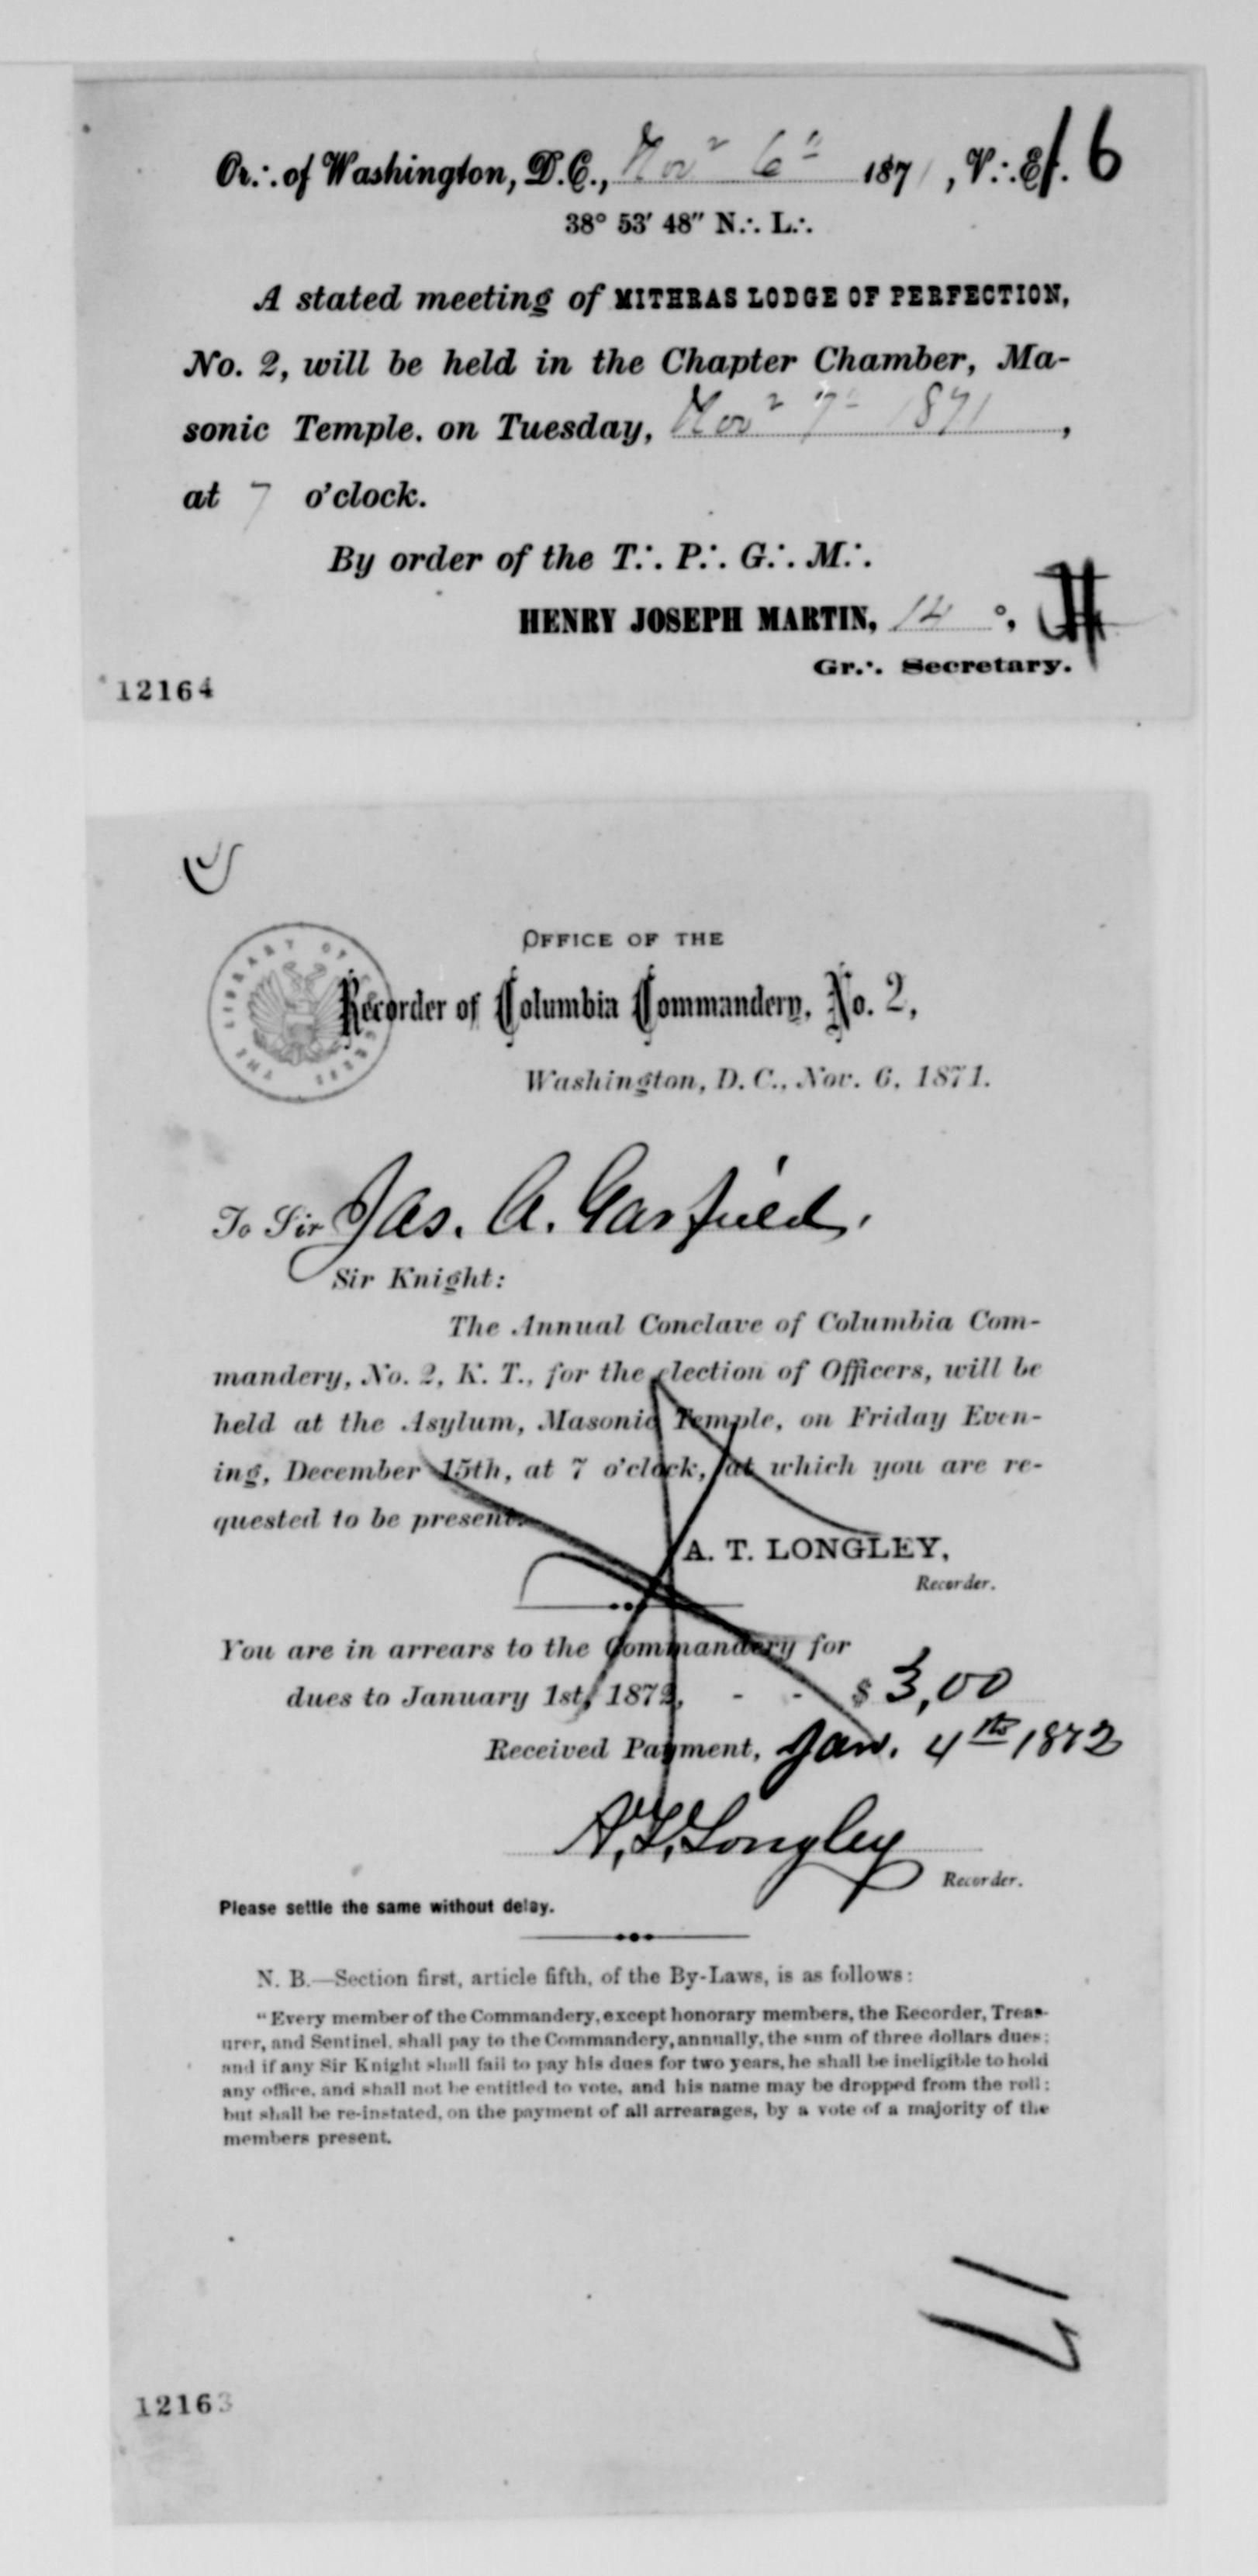 Or∴ of Washington, D.C., Nov 6 1871, V∴ E∴ f. 6
38° 53′ 48″ N∴ L∴
A stated meeting of MITHRAS LODGE OF PERFECTION,
No. 2, will be held in the Chapter Chamber, Ma-
sonic Temple, on Tuesday, Nov 7 1871,
at 7 o'clock.
By order of the T∴ P∴ G∴ M∴
HENRY JOSEPH MARTIN, 14°,
Gr∴ Secretary.
12164
OFFICE OF THE
Recorder of Columbia Commandery, No. 2,
THE LIBRARY OF CONGRESS
Washington, D. C., Nov. 6, 1871.
To Sir Jas. A. Garfield.
Sir Knight:
The Annual Conclave of Columbia Com-
mandery, No. 2, K. T., for the election of Officers, will be
held at the Asylum, Masonic Temple, on Friday Even-
ing, December 15th, at 7 o'clock, at which you are re-
quested to be present.
A. T. LONGLEY,
Recorder.
You are in arrears to the Commandery for
dues to January 1st, 1872, - - $3,00
Received Payment, Jan. 4th 1872
A. T. Longley
Recorder.
Please settle the same without delay.
N. B.—Section first, article fifth, of the By-Laws, is as follows:
"Every member of the Commandery, except honorary members, the Recorder, Treas-
urer, and Sentinel, shall pay to the Commandery, annually, the sum of three dollars dues;
and if any Sir Knight shall fail to pay his dues for two years, he shall be ineligible to hold
any office, and shall not be entitled to vote, and his name may be dropped from the roll;
but shall be re-instated, on the payment of all arrearages, by a vote of a majority of the
members present.
12163